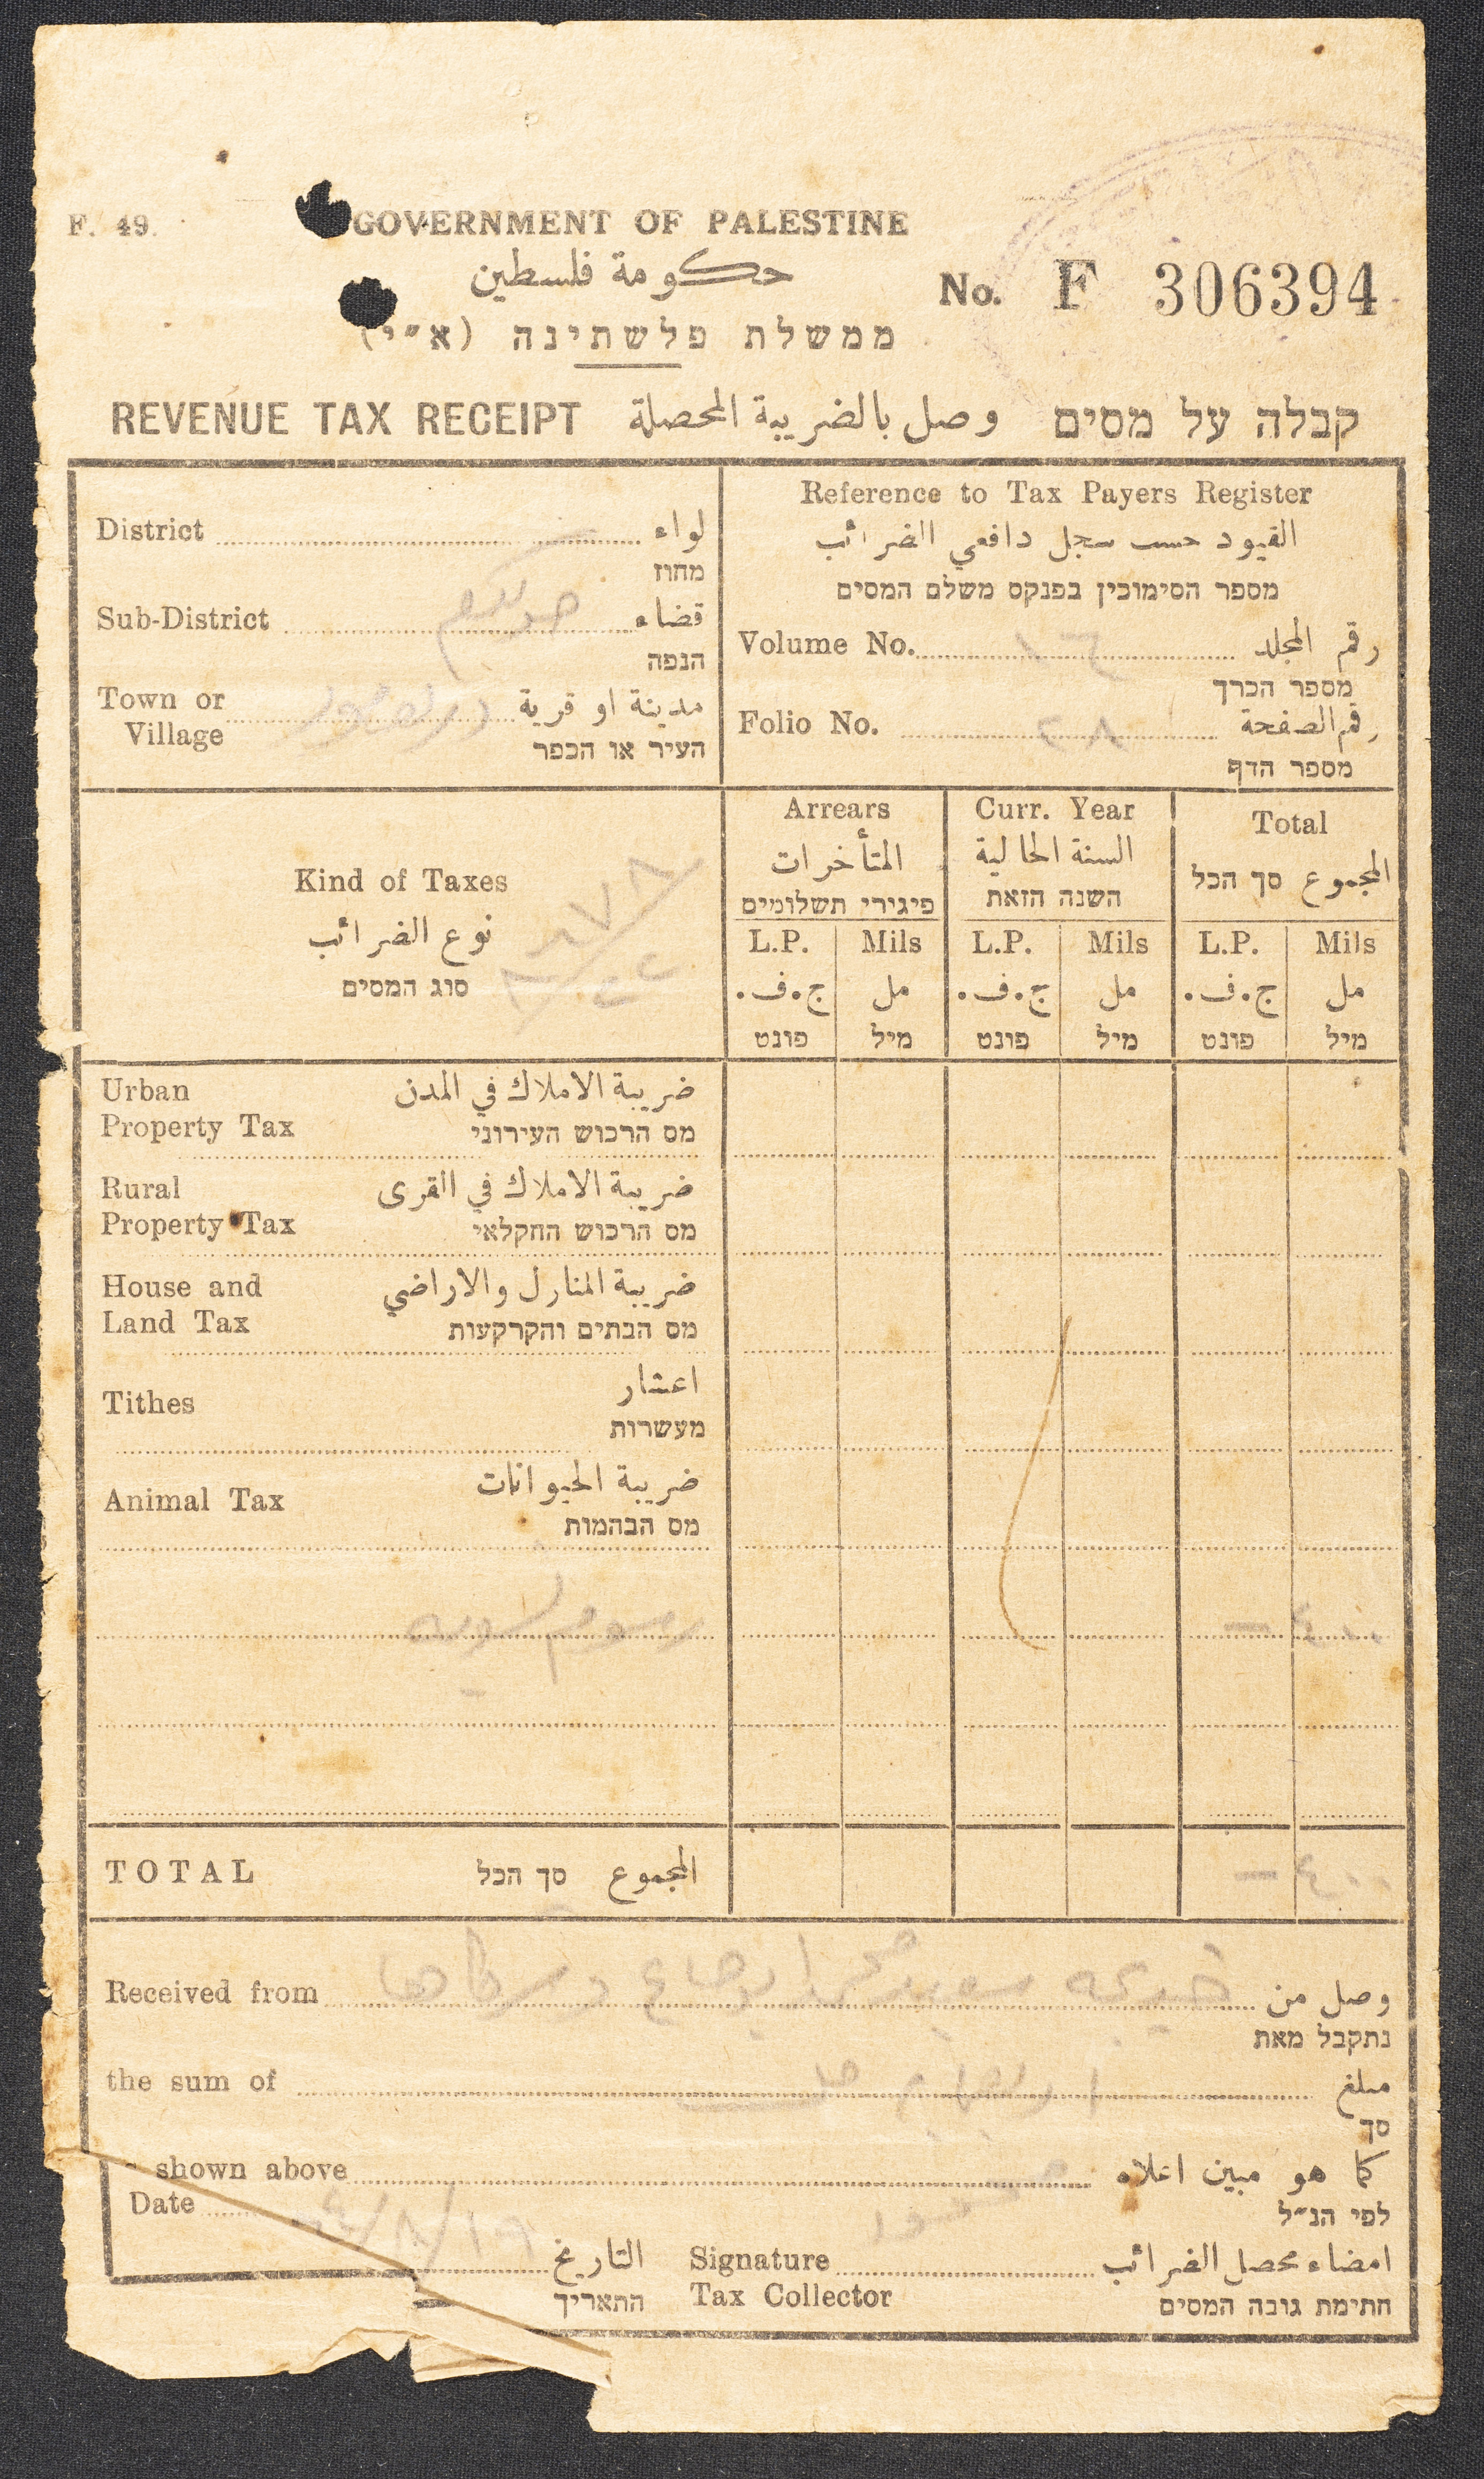 F. 49.
GOVERNMENT OF PALESTINE
حكومة فلسطين
ממשלת פלשתינה (א״י)
No. F 306394
REVENUE TAX RECEIPT وصل بالضريبة المحصلة קבלה על מסים
District لواء
מחוז
Sub-District قضاء
הנפה
Town or Village مدينة او قرية
העיר או הכפר
Reference to Tax Payers Register
القيود حسب سجل دافعي الضرائب
מספר הסימוכין בפנקס משלם המסים
Volume No. رقم المجلد
מספר הכרך
Folio No. ٢٨ رقم الصفحة
מספר הדף
Kind of Taxes
نوع الضرائب
סוג המסים
Arrears
المتأخرات
פיגורי תשלומים
Curr. Year
السنة الحالية
השנה הזאת
Total
المجموع סך הכל
L.P. Mils L.P. Mils L.P. Mils
ج.ف. مل ج.ف. مل ج.ف. مل
פונט מיל פונט מיל פונט מיל
Urban ضريبة الاملاك في المدن
Property Tax מס הרכוש העירוני
Rural ضريبة الاملاك في القرى
Property Tax מס הרכוש החקלאי
House and ضريبة المنازل والاراضي
Land Tax מס הבתים והקרקעות
Tithes اعشار
מעשרות
Animal Tax ضريبة الحيوانات
מס הבהמות
رسوم — ٤٠٠
TOTAL סך הכל المجموع — ٤٠٠
Received from وصل من
נתקבל מאת
the sum of مبلغ
סך
shown above كما هو مبين اعلاه
לפי הנ״ל
Date التاريخ
התאריך
Signature امضاء محصل الضرائب
Tax Collector חתימת גובה המסים